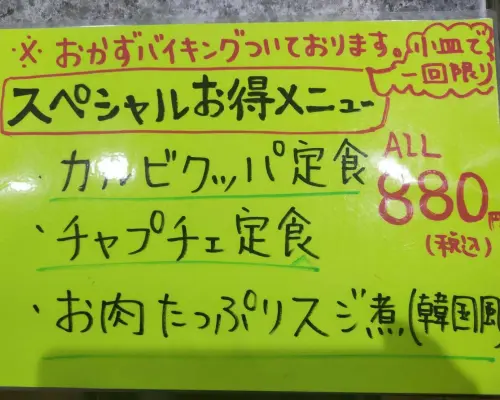 ※おかずバイキングついております。
小皿で
一回限り
スペシャルお得メニュー
・カルビクッパ定食
・チャプチェ定食
・お肉たっぷりスジ煮(韓国風
ALL
880円
(税込)